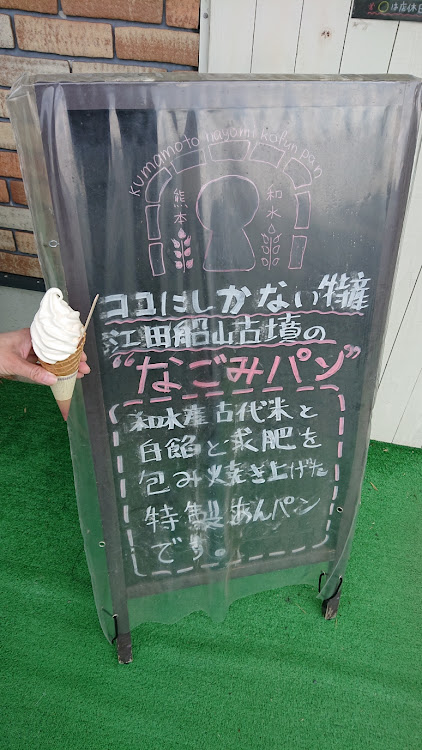 kumamoto nagomi kofun pan
熊本
和水
ココにしかない特産
江田船山古墳の
"なごみパン"
和水産古代米と
白餡と求肥を
包み焼き上げた
特製あんパン
です。